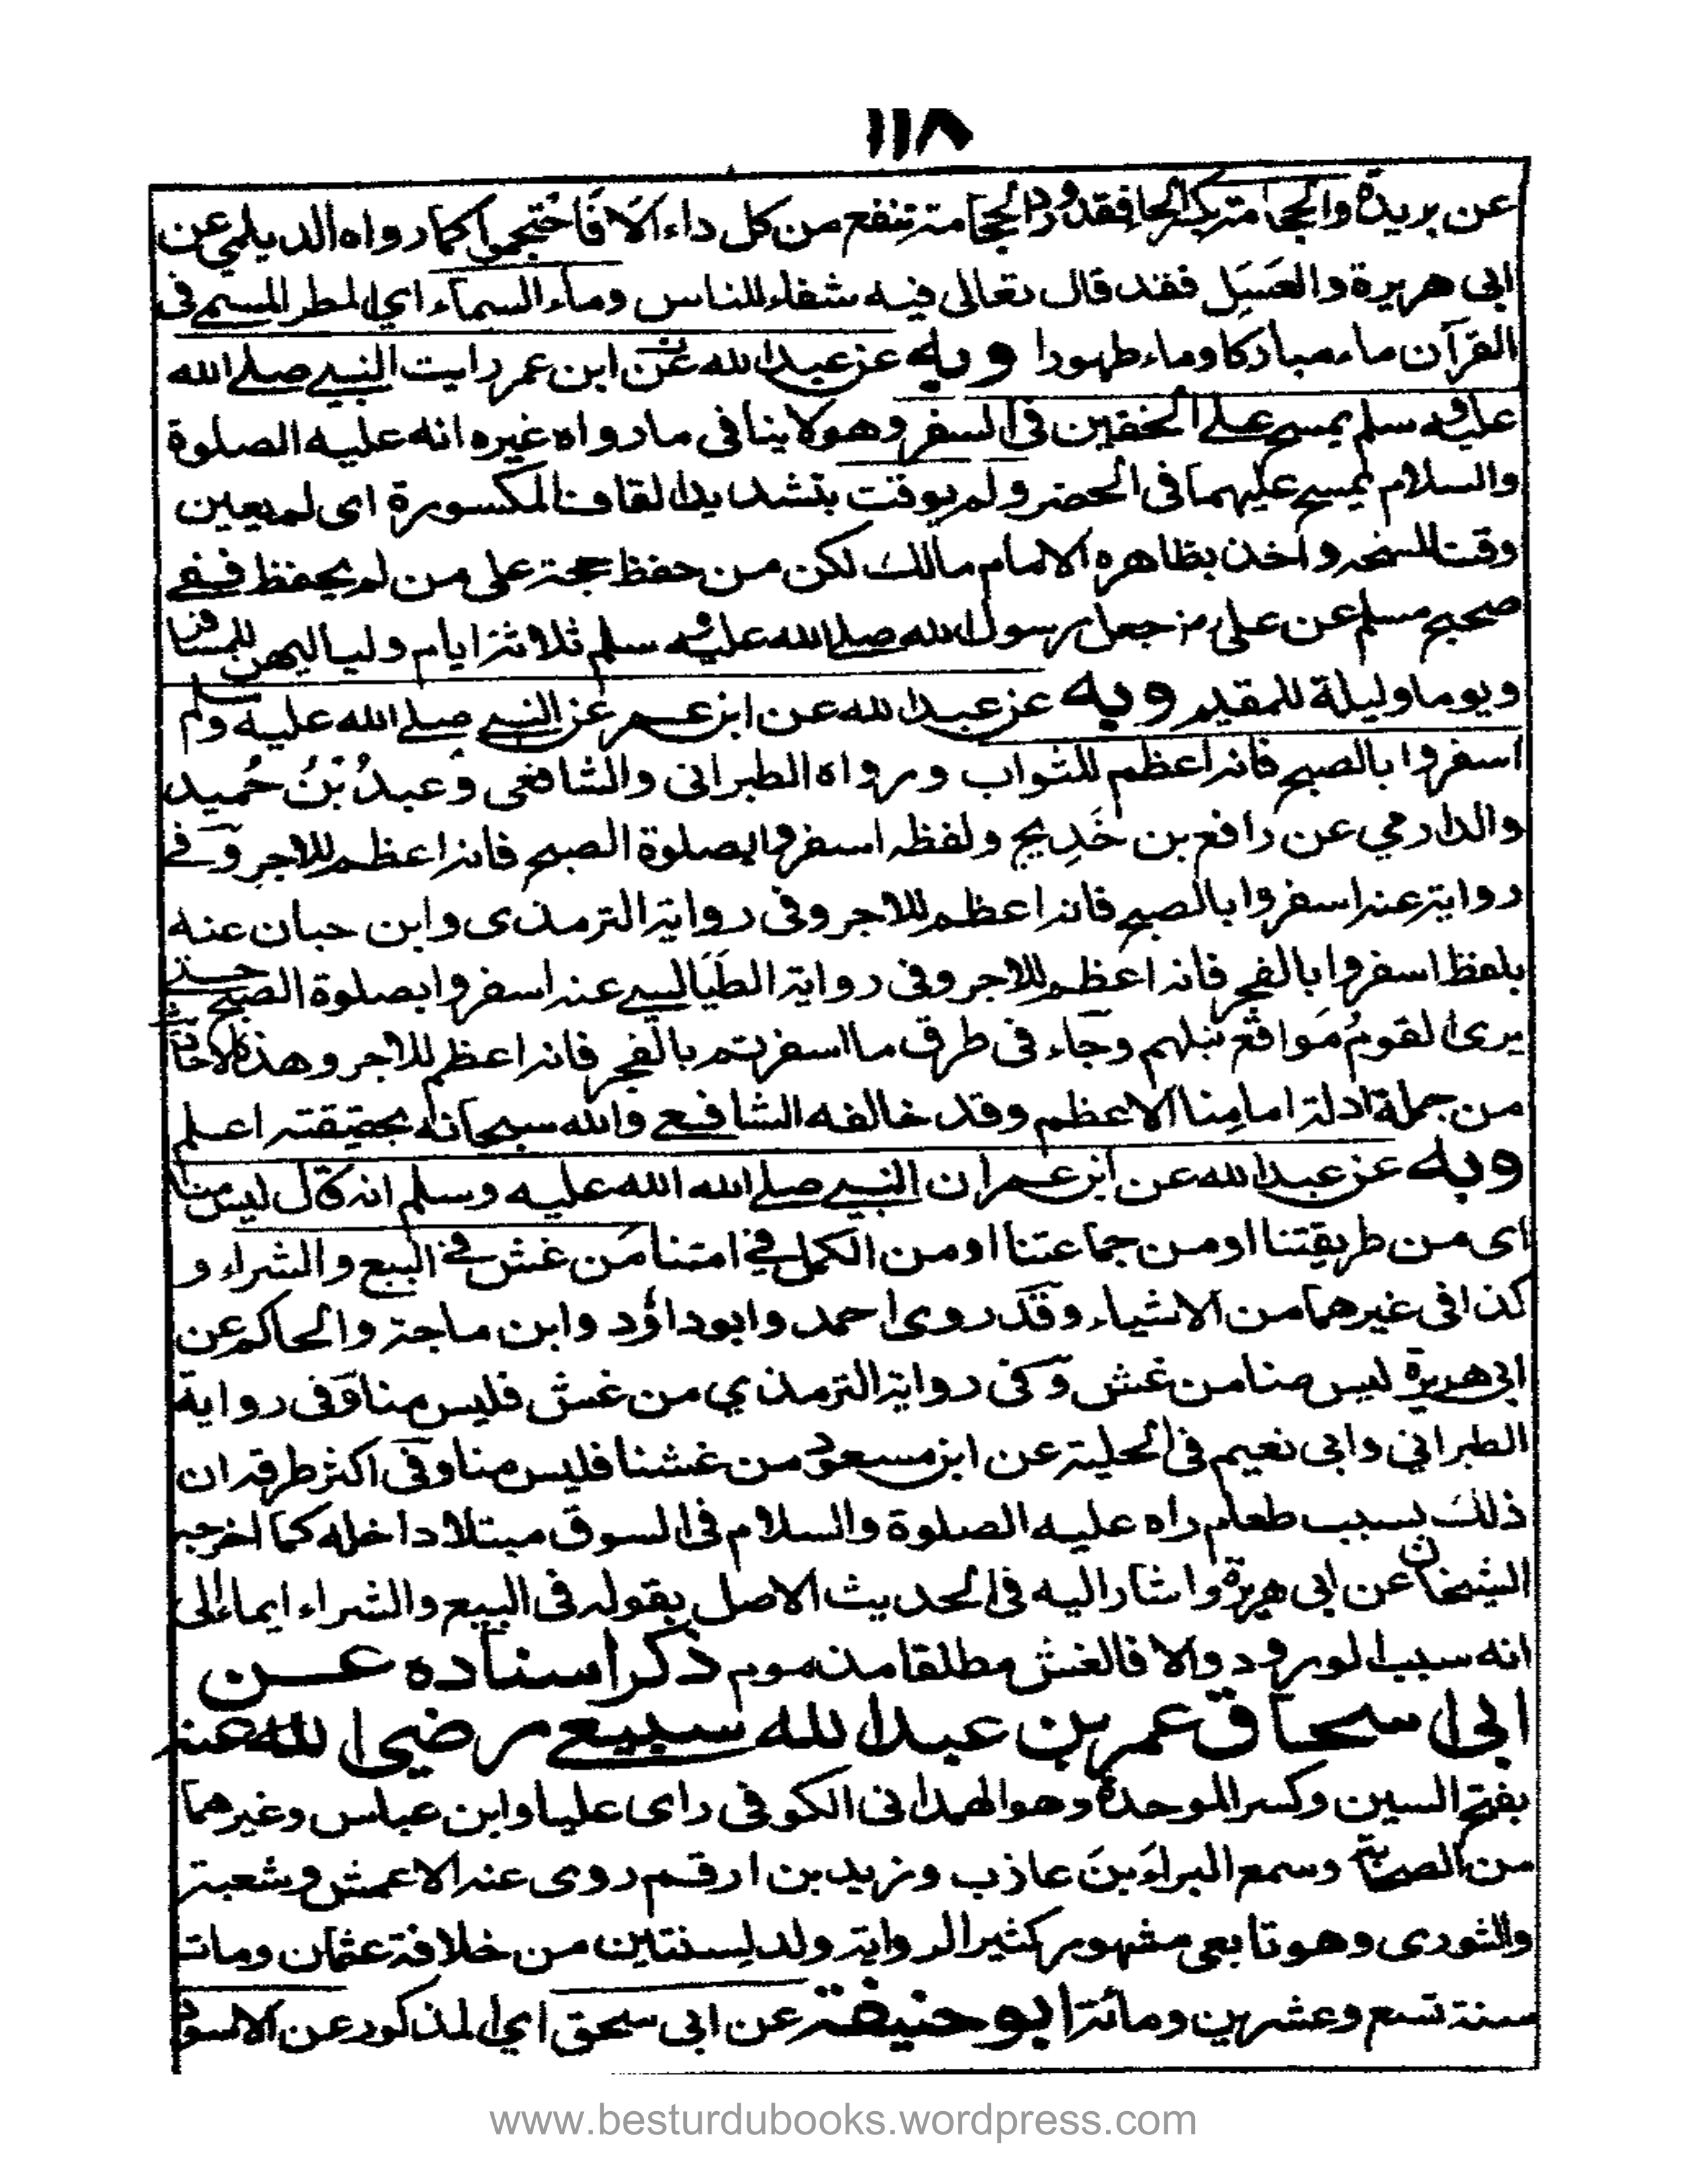 ١١٨
عن بريدة والحجامة بكسر الحا فقد ورد الحجامة تنفع من كل داء الا فَاحْتَجِموا كما رواه الديلمي عن
ابى هريرة والعَسَل فقد قال تعالى فيه شفاء للناس وماء السماء اي المطر المسمى فى
القرآن ماء مباركا وماء طهورا وبه عن عبد الله عن ابن عمر رايت النبي صلے الله
عليه وسلم يمسح علے الخفين فى السفر وهو لا ينافى ما رواه غيره انه عليه الصلوة
والسلام يمسح عليهما فى الحضر ولم يوقت بتشديد القاف المكسورة اى لم يعين
وقتا للمسح واخذ بظاهره الامام مالك لكن من حفظ حجة على من لم يحفظ ففے
صحيح مسلم عن على رض جعل رسول الله صلے الله عليه وسلم ثلاثة ايام ولياليهن للمسافر
ويوما وليلة للمقيم وبه عن عبد الله عن ابن عمر عن النبے صلے الله عليه وسلم
اسفروا بالصبح فانه اعظم للثواب ورواه الطبرانى والشافعى وعبدُ بْنُ حُميد
والدارمي عن رافع بن خَدِيج ولفظه اسفروا بصلوة الصبح فانه اعظم للاجر وفے
رواية عنه اسفروا بالصبح فانه اعظم للاجر وفى رواية الترمذى وابن حبان عنه
بلفظ اسفروا بالفجر فانه اعظم للاجر وفى رواية الطَيَالسے عنه اسفروا بصلوة الصبح حتے
يرى القومُ مَواقع نبلهم وجاء فى طرق ما اسفرتم بالفجر فانه اعظم للاجر وهذه الاحاديث
من جملة ادلة امامِنا الاعظم وقد خالفه الشافعے والله سبحانه بحقيقته اعلم
وبه عن عبد الله عن ابن عمر ان النبے صلے الله الله عليه وسلم انه قال ليس منا
اى من طريقتنا او من جماعتنا او من الكمل في امتنا مَن غش في البيع والشراء و
كذا فى غيرهما من الاشياء وقد روى احمد وابو داؤد وابن ماجة والحاكم عن
ابى هريرة ليس منا من غش وفى رواية الترمذي من غش فليس منا وفى رواية
الطبراني وابى نعيم فى الحلية عن ابن مسعود من غشنا فليس منا وفى اكثر طرقه ان
ذلك بسبب طعام راه عليه الصلوة والسلام فى السوق مبتلا داخله كما اخرجه
الشيخان عن ابى هريرة واشار اليه فى الحديث الاصل بقوله فى البيع والشراء ايماء الى
انه سبب الورود والا فالغش مطلقا مذموم ذكر اسناده عن
ابى اسحاق عمر بن عبد الله سبيعے رضى الله عنه
بفتح السين وكسر الموحدة وهو الهمدانى الكوفى راى عليا وابن عباس وغيرهما
من الصحابة وسمع البراءَ بنَ عاذب وزيد بن ارقم روى عنه الاعمش وشعبة
والثورى وهو تابعى مشهور كثير الرواية ولد لسنتين من خلافة عثمان ومات
سنة تسع وعشرين ومائة ابو حنيفة عن ابى سحق اي المذكور عن الاسود
www.besturdubooks.wordpress.com